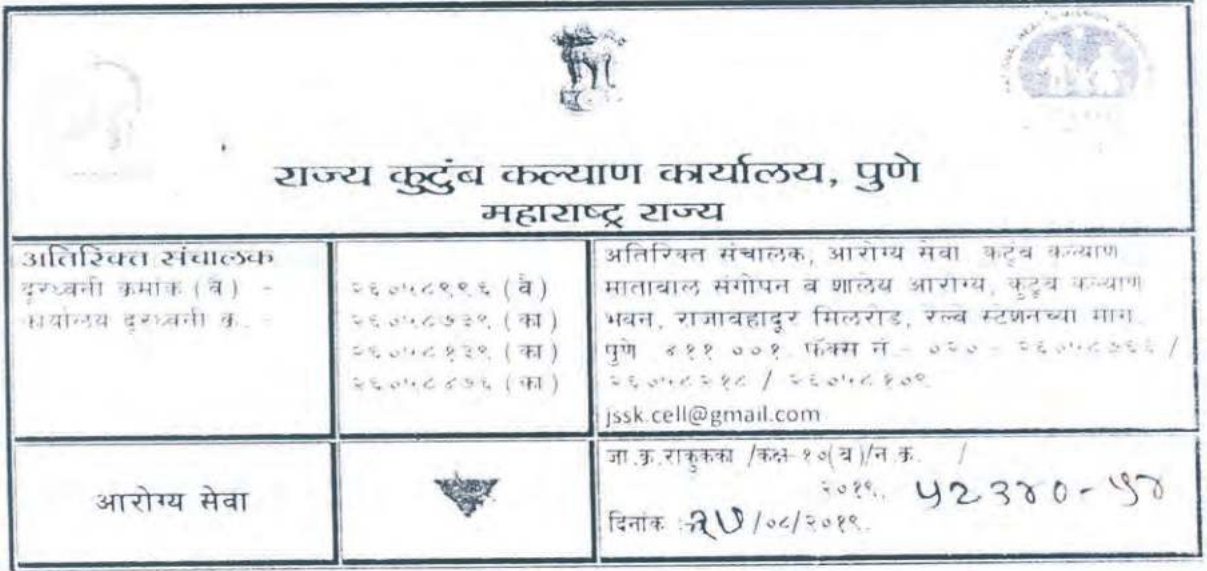 राज्य कुटुंब कल्याण कार्यालय, पुणे
महाराष्ट्र राज्य
अतिरिक्त संचालक
दूरध्वनी क्रमांक (वै) -
कार्यालय दूरध्वनी क्र. -
२६०५८९९६ (वै)
२६०५८७३९ (का)
२६०५८१३९ (का)
२६०५८४७६ (का)
अतिरिक्त संचालक, आरोग्य सेवा कुटुंब कल्याण
माताबाल संगोपन व शालेय आरोग्य, कुटुंब कल्याण
भवन, राजाबहादूर मिलरोड, रेल्वे स्टेशनच्या मागे
पुणे ४११ ००१. फॅक्स नं.- ०२० - २६०५८७६६ /
२६०५८२१८ / २६०५८१०९
jssk.cell@gmail.com
आरोग्य सेवा
जा.क्र.राकुकका /कक्ष-१०(ब)/न.क्र. /
२०१९. ५२३४०-५४
दिनांक : २७/०८/२०१९.